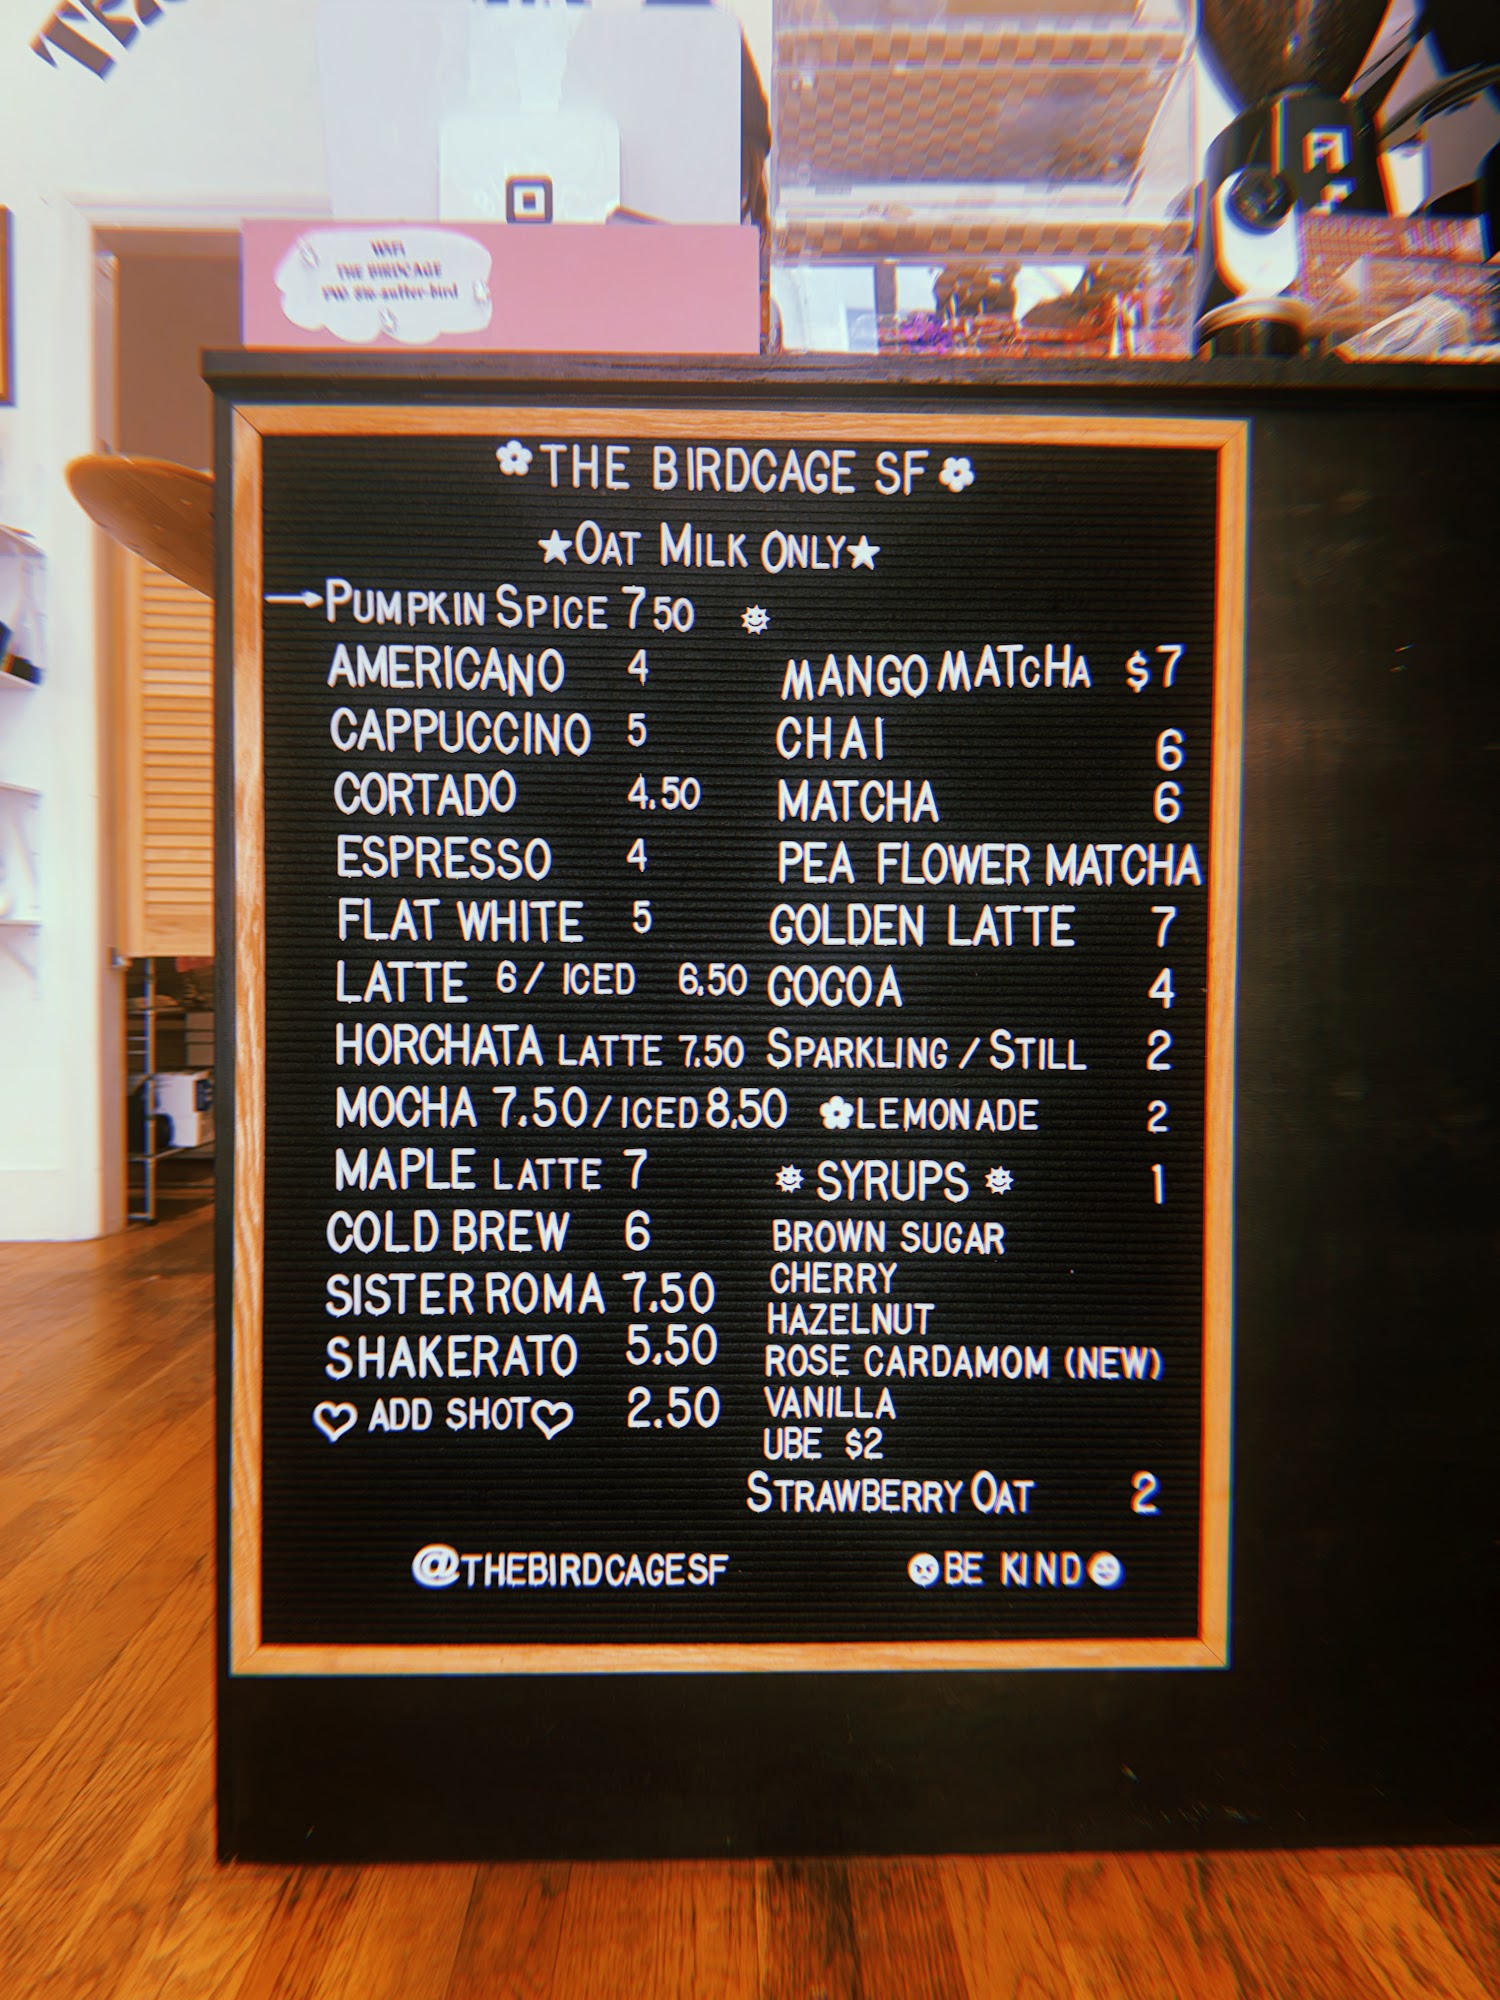 WIFI
THE BIRDCAGE
THE BIRDCAGE SF
OAT MILK ONLY
PUMPKIN SPICE 7 50
AMERICANO 4
CAPPUCCINO 5
CORTADO 4.50
ESPRESSO 4
FLAT WHITE 5
LATTE 6/ ICED 6.50
HORCHATA LATTE 7.50
MOCHA 7.50/ICED 8.50
MAPLE LATTE 7
COLD BREW 6
SISTER ROMA 7.50
SHAKERATO 5.50
♡ ADD SHOT♡ 2.50
MANGO MATCHA $7
CHAI 6
MATCHA 6
PEA FLOWER MATCHA
GOLDEN LATTE 7
COCOA 4
SPARKLING / STILL 2
LEMONADE 2
SYRUPS 1
BROWN SUGAR
CHERRY
HAZELNUT
ROSE CARDAMOM (NEW)
VANILLA
UBE $2
STRAWBERRY OAT 2
@THEBIRDCAGESF
BE KIND